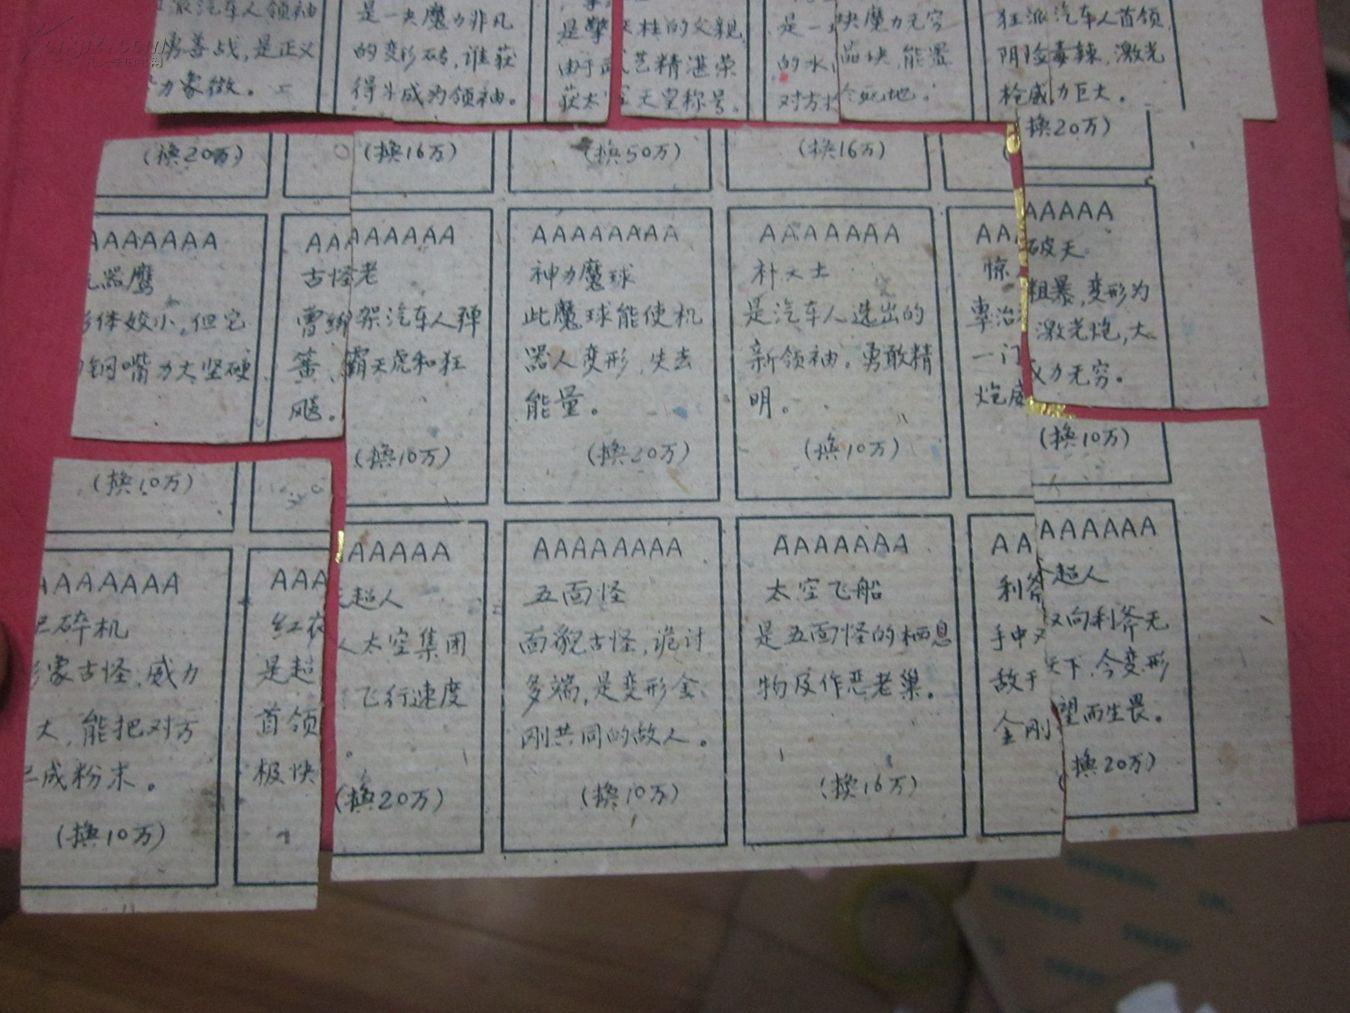 派汽车人领袖
勇善战，是正义
力象徵。
是一夹魔力非凡
的变形砖，谁获
得斗成为领袖。
是擎天柱的父亲
由于武艺精湛荣
获太空天皇称号。
是一
的水
对方
块魔力无穷
品块，能置
死地。
狂派汽车人首领
阴险毒辣，激光
枪威力巨大。
(换20万)
(换16万)
(换50万)
(换16万)
(换20万)
AAAAAAA
器鹰
体姣小，但它
钢嘴力大坚硬
AAAAAAAA
古怪老
曹绑架汽车人弹
簧、霸天虎和狂
飚。
(换10万)
AAAAAAAA
神力魔球
此魔球能使机
器人变形，失去
能量。
(换20万)
AAAAAAA
朴义士
是汽车人选出的
新领袖。勇敢精
明。
(换10万)
AAAAAAA
惊破天
粗暴，变形为
一门激光炮，大
炮威力无穷。
(换10万)
(换10万)
AAAAAAA
碎机
象古怪，威力
大，能把对方
成粉末。
(换10万)
AAAAAAAA
红
是超
首领
极快
超人
人太空集团
飞行速度
。
(换20万)
AAAAAAAA
五面怪
面貌古怪，诡讨
多端，是变形金
刚共同的敌人。
(换10万)
AAAAAAA
太空飞船
是五面怪的栖息
物及作恶老巢。
(换16万)
AAAAAAAA
利斧超人
手中双向利斧无
敌于天下，令变形
金刚望而生畏。
(换20万)